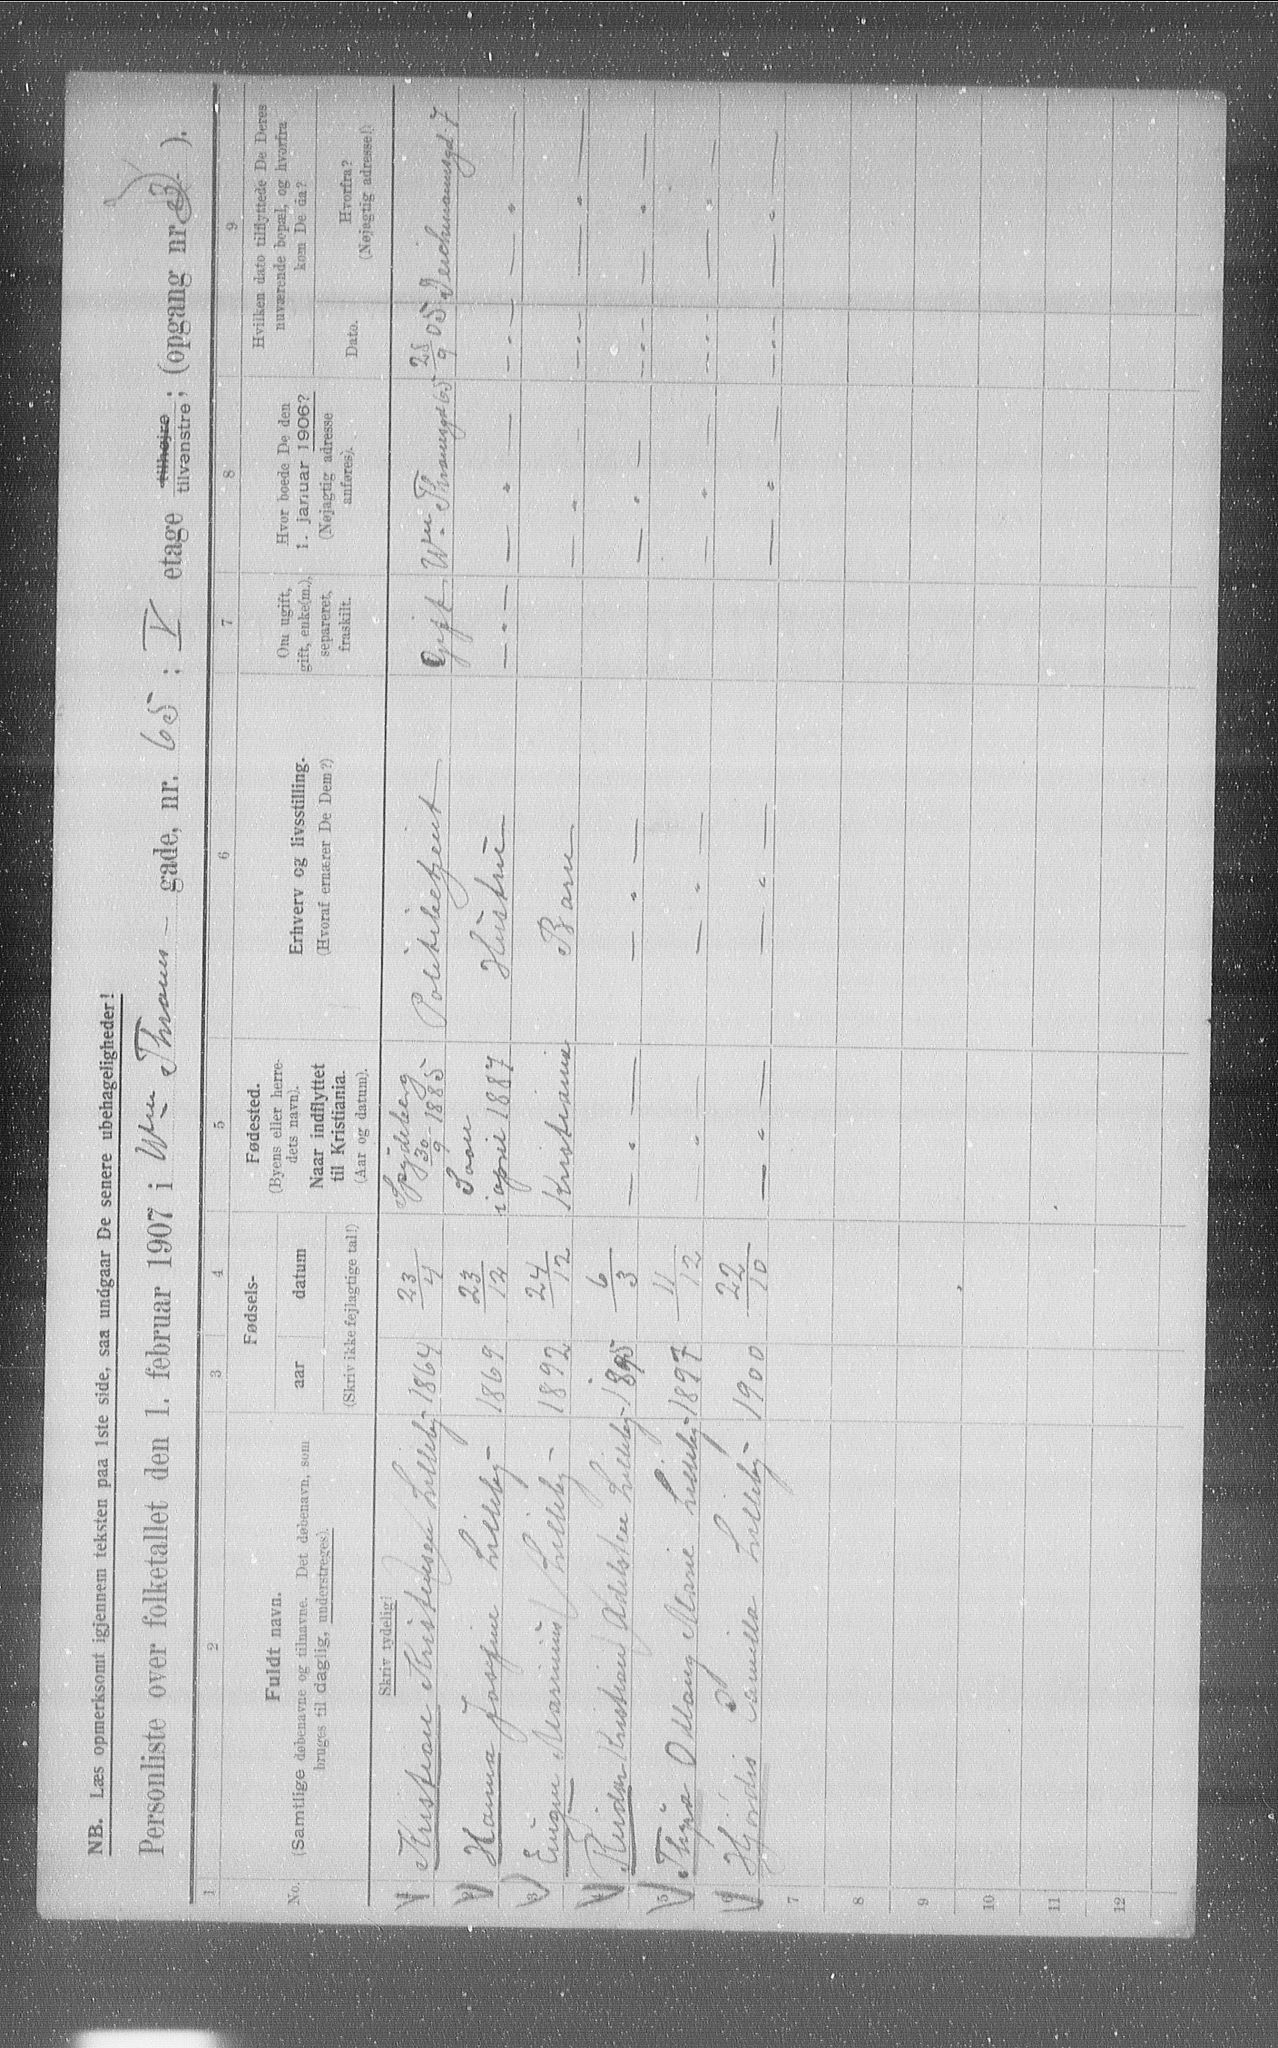 NB. Læs opmerksomt igjennem teksten paa 1ste side, saa undgaar De senere ubehageligheder!
Personliste over folketallet den 1. februar 1907 i Wm Thranes gade, nr. 65 ; V etage tilhøjre tilvenstre; (opgang nr. ).
1
2
3
4
5
6
7
8
9
No.
Fuldt navn.
(Samtlige døbenavne og tilnavne. Det døbenavn, som
bruges til daglig, understreges).
Skriv tydelig!
Fødsels-
aar
datum
(Skriv ikke fejlagtige tal!)
Fødested.
(Byens eller herre-
dets navn).
Naar indflyttet
til Kristiania.
(Aar og datum).
Erhverv og livsstilling.
(Hvoraf ernærer De Dem?)
Om ugift,
gift, enke(m.),
separeret,
fraskilt.
Hvor boede De den
1. januar 1906?
(Nøjagtig adresse
anføres).
Hvilken dato tilflyttede De Deres
nuværende bopæl, og hvorfra
kom De da?
Dato.
Hvorfra?
(Nøjagtig adresse!)
1 Kristian Kristensen Lilleby 1864 23/4 Spydeberg 30/9 - 1885 Politibetjent Gift Wm Thranesgd 65 28/9 05 Deichmannsgd 7
2 Hanna Josefine Lilleby 1869 23/12 Soon i april 1887 Hustru — " — — " — — " — — " —
3 Marinius Lilleby 1892 24/12 Kristiania Barn — " — — " — — " —
4 Reidar Kristian Adelsten Lilleby 1895 6/3 — " — — " — — " — — " — — " —
5 Thyra Marie Lilleby 1897 11/12 — " — — " — — " — — " — — " —
6 Hjørdis Camilla Lilleby 1900 22/10 — " — — " — — " — — " — — " —
7
8
9
10
11
12